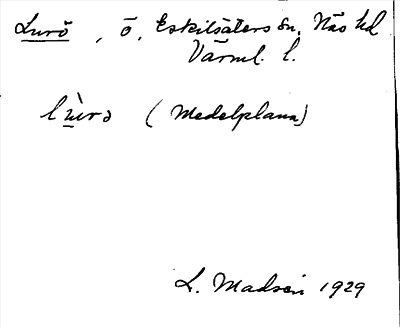 Lurö, ö, Eskilsäters sn, Näs hd
Värml. l.
(Medelplana)
L. Madsén 1929